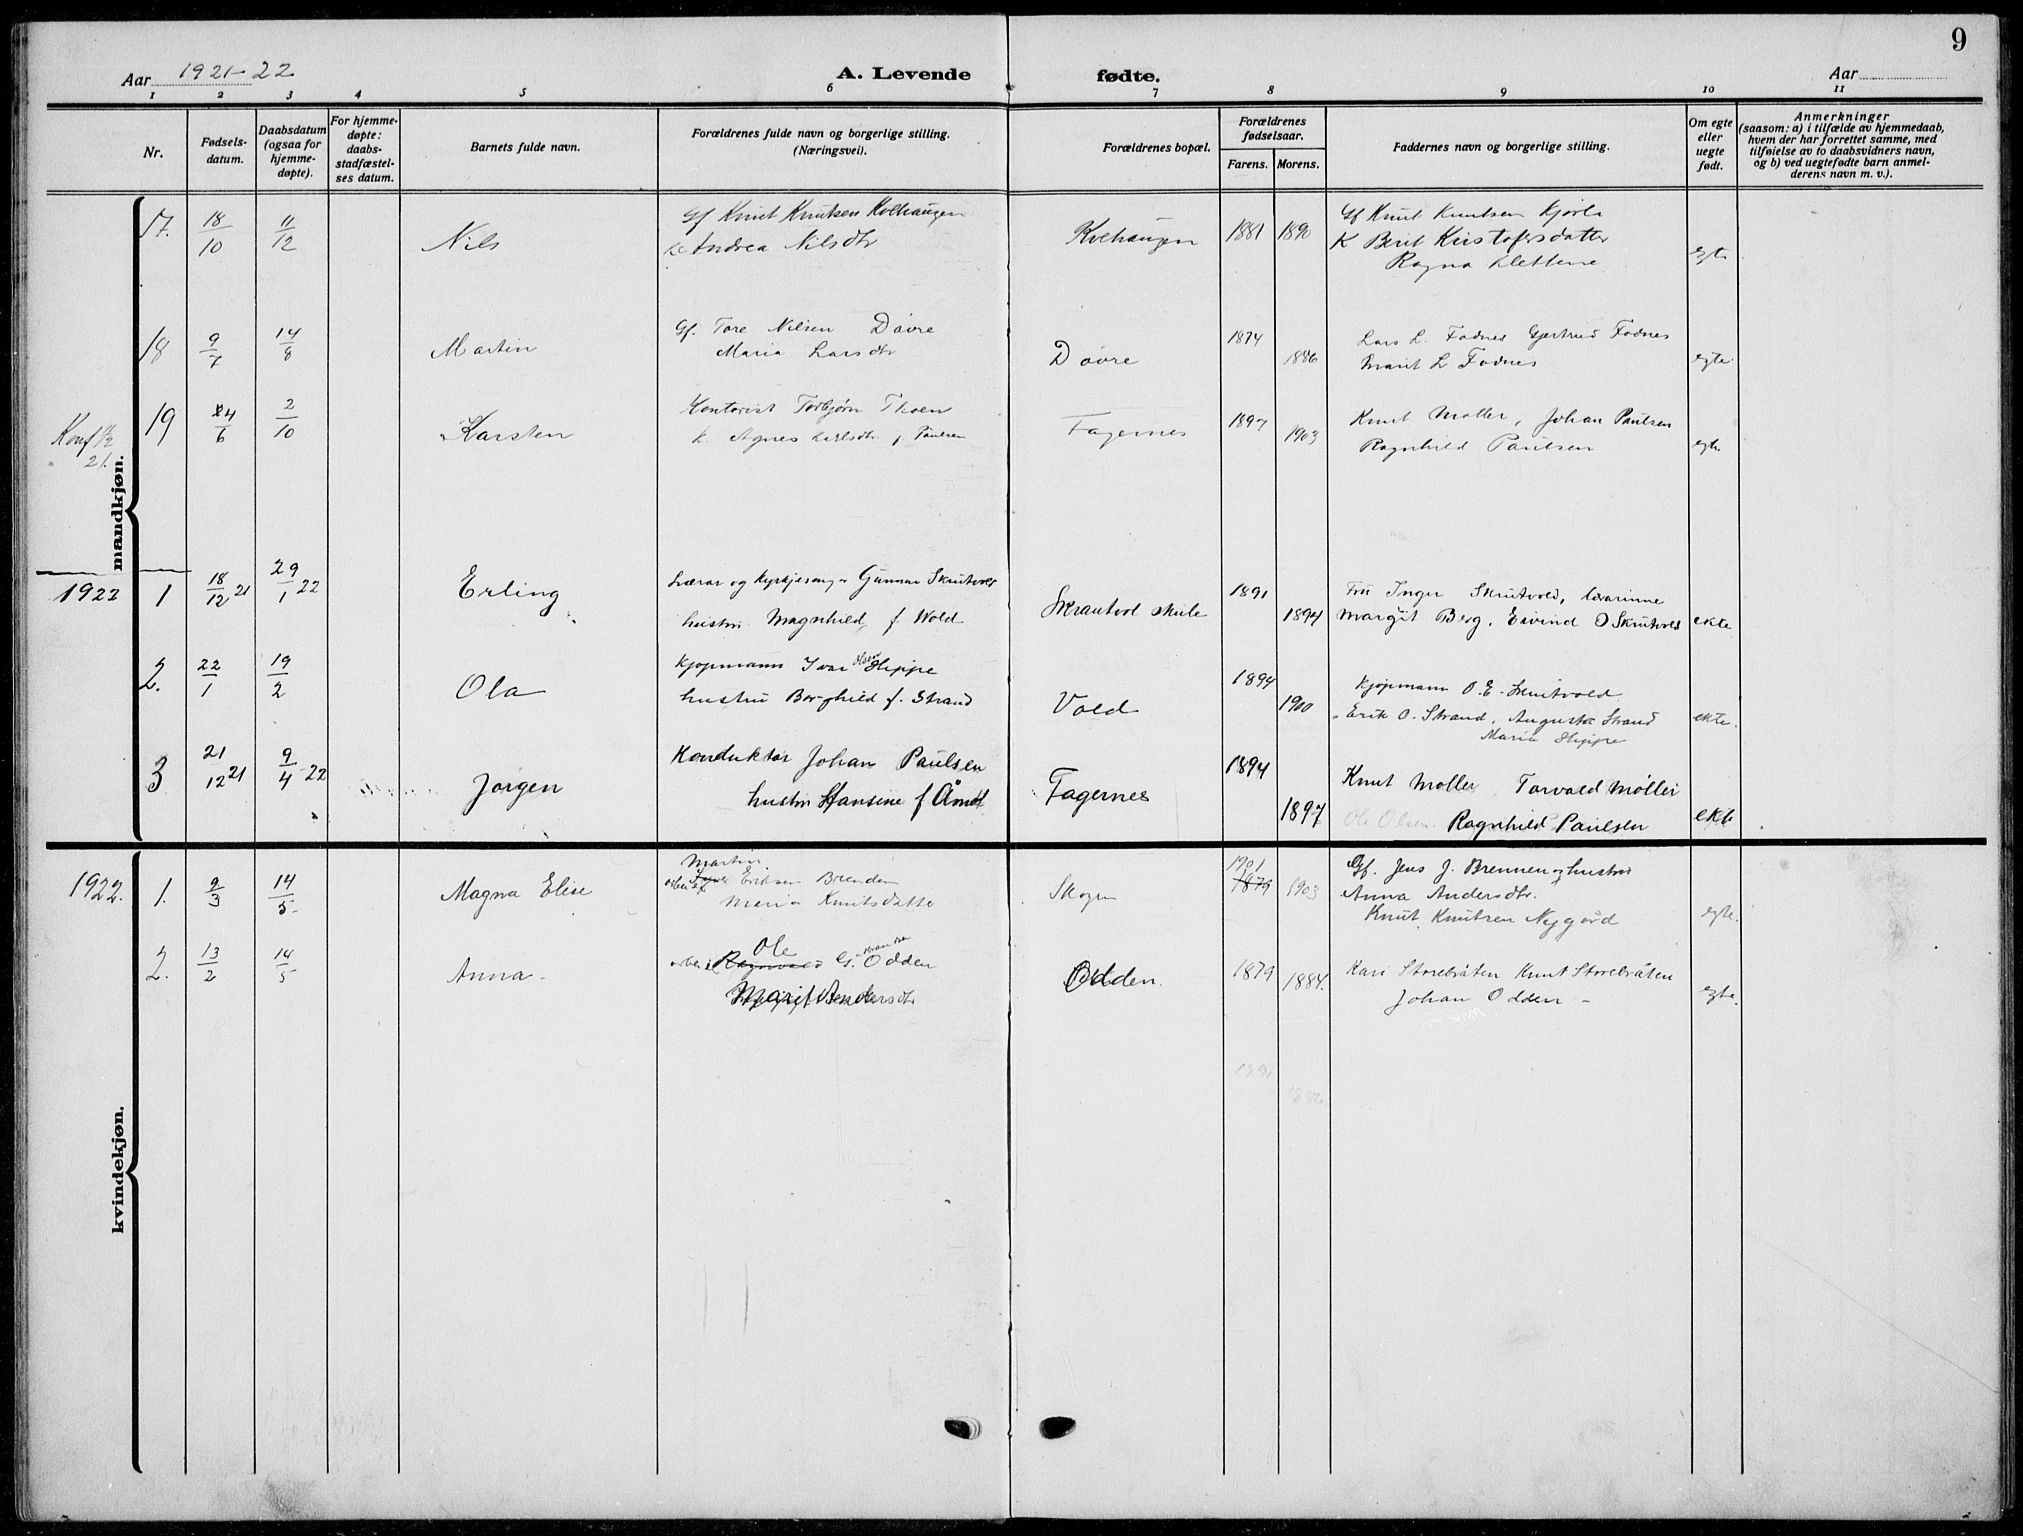 9
Aar 1921-22
A. Levende fødte.
Aar
1 2 3 4 5 6 7 8 9 10 11
Nr.
Fødsels-
datum.
Daabsdatum
(ogsaa for
hjemme-
døpte).
For hjemme-
døpte:
daabs-
stadfæstel-
ses datum.
Barnets fulde navn.
Forældrenes fulde navn og borgerlige stilling.
(Næringsvei).
Forældrenes bopæl.
Forældrenes
fødselsaar.
Farens. Morens.
Faddernes navn og borgerlige stilling.
Om egte
eller
uegte
født.
Anmerkninger
(saasom: a) i tilfælde av hjemmedaab,
hvem der har forrettet samme, med
tilføielse av to daabsvidners navn,
og b) ved uegtefødte barn anmel-
derens navn m. v.).
mandkjøn.
17. 18/10 11/12 Nils
Gf Knut Knutsen Kolhaugen
k Andrea Nilsdtr
Kolhaugen 1881 1890
Gf Knut Knutsen Kjørli
K Berit Kristofersdatter
Ragna Klettene
egte
18 9/7 14/8 Martin
Gf. Tore Nilsen Døvre
Maria Larsdtr
Døvre 1874 1886
Lars L. Fodnes Gjertrud Fodnes
Marit L Fodnes
egte.
Konf
21.
19 24/6 2/10 Karsten
Kontorist Torbjørn Thoen
k. Agnes Karlsdtr. f Paulsen
Fagernes 1897 1903
Knut Møller, Johan Paulsen
Ragnhild Paulsen
egte.
1922 1 18/12 21 29/1 22 Erling
Lærar og kyrkjesongar Gunnar Skrutvold
hustru Magnhild f. Wold
Skrautvol skule 1891 1894
Fru Inger Skrutvold, lærarinne
Margit Berg, Eivind O Skrutvold
ekte
2. 22/1 19/2 Ola
Kjøpmann Ivar Olsen Hippe
hustru Borghild f. Strand
Vold 1894 1900
Kjøpmann O. E. Skrutvold
Erik O. Strand, Augusta Strand
Maria Hippe
ekte.
3 21/12 21 9/4 22 Jørgen
Konduktør Johan Paulsen
hustru Hansine f Åmot
Fagernes 1894 1897
Knut Møller Torvald Møller
Ole Olsen Ragnhild Paulsen
ekte
kvindekjøn.
1922. 1. 9/3 14/5 Magna Elise
Martin
arbeider Eriksen Brenden
Maria Knutsdatter
Skogen 1901 1879 1903
Gf. Jens J. Brennen og hustru
Anna Andersdtr.
Knut Knutsen Nygård
egte.
2. 13/2 14/5 Anna
Ole
arbei Ragnvald G. Odden
Marit Andersdtr
Odden. 1879 1884.
Kari Storebråten Knut Storebråten
Johan Odden
egte.
1891
1886